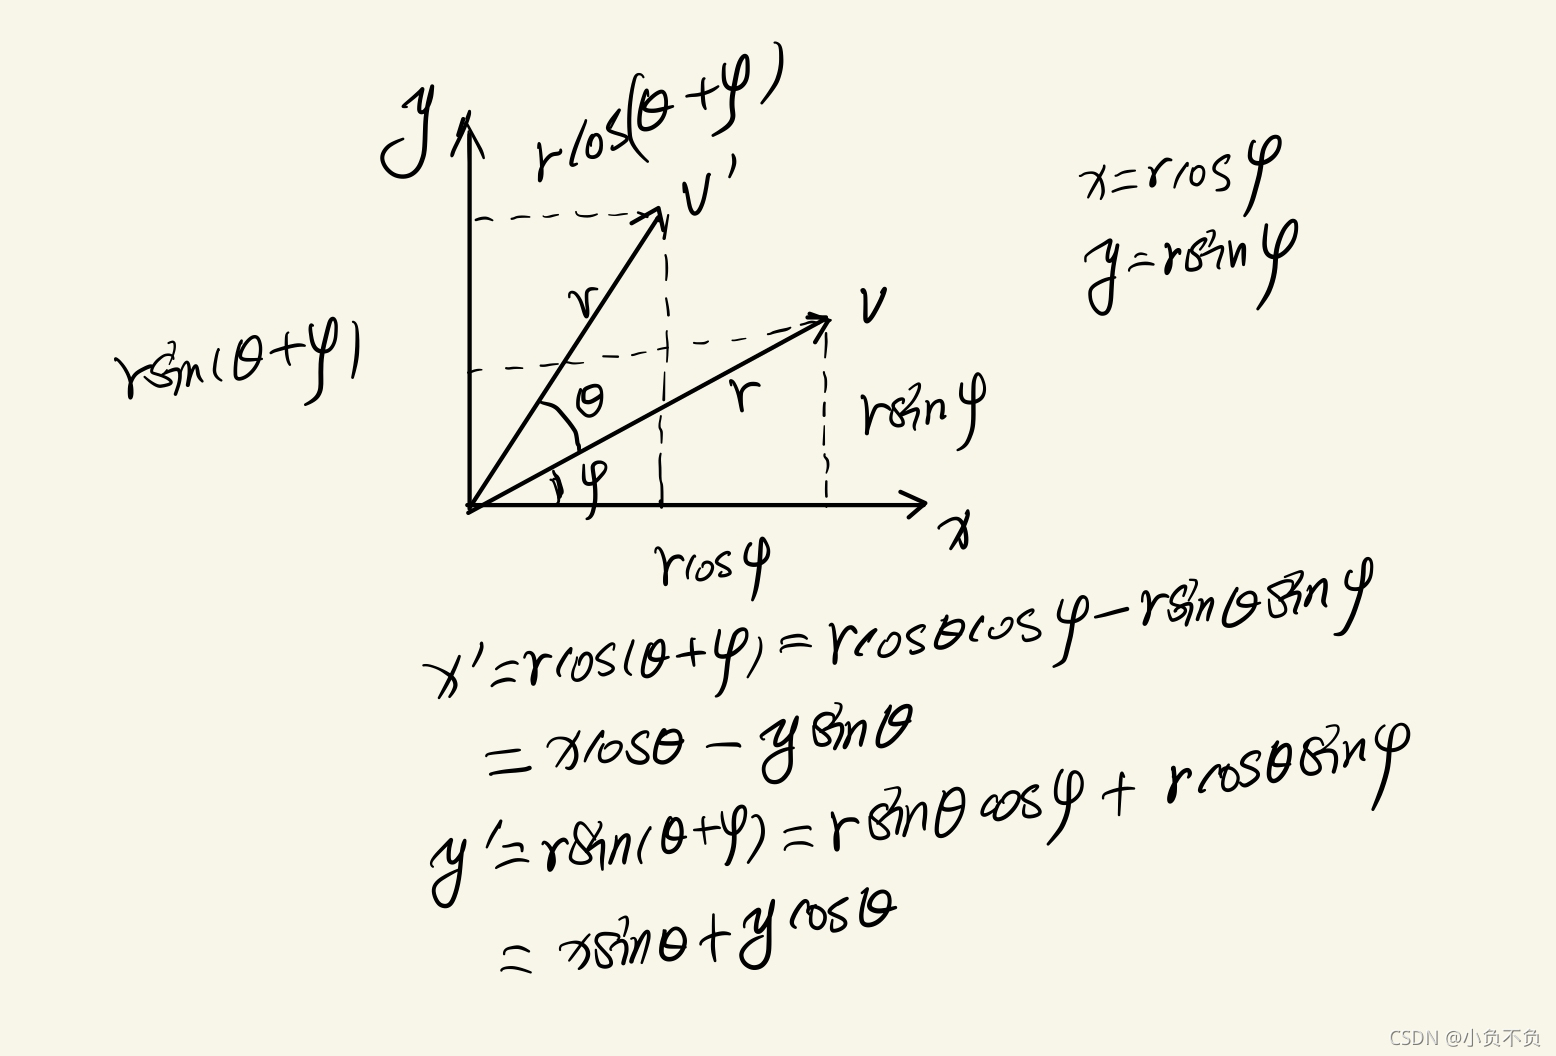 y
rcos(θ+φ)
v'
x=rcosφ
y=rsinφ
r
v
rsin(θ+φ)
θ
r
rsinφ
φ
x
rcosφ
x'=rcos(θ+φ)=rcosθcosφ-rsinθsinφ
=xcosθ-ysinθ
y'=rsin(θ+φ)=rsinθcosφ+rcosθsinφ
=xsinθ+ycosθ
CSDN @小负不负